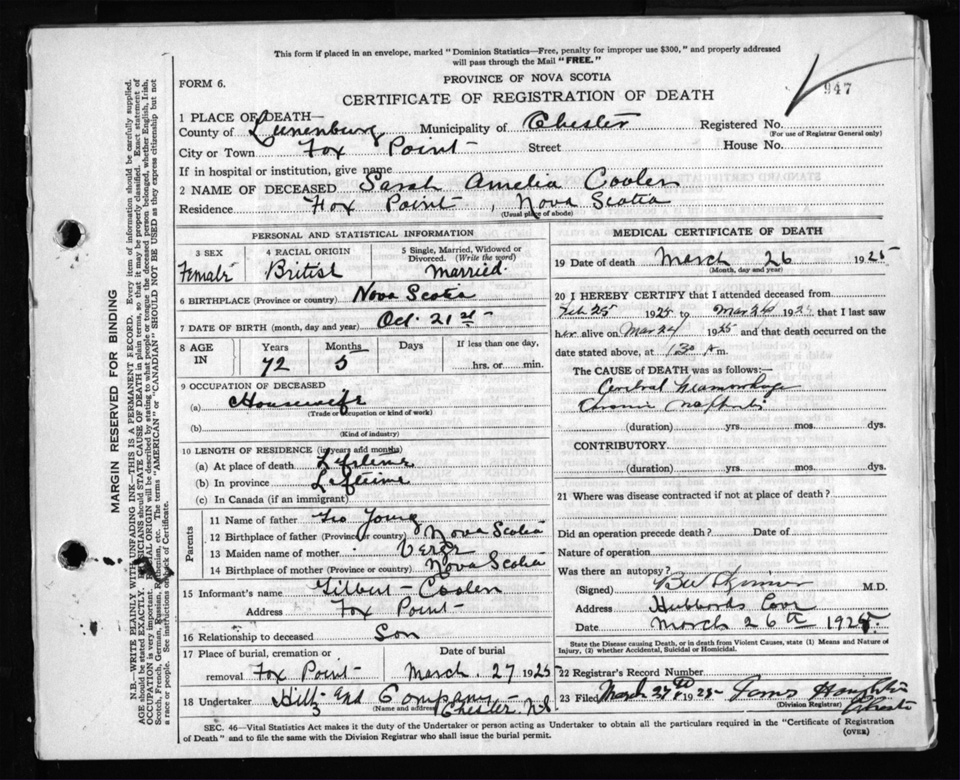 This form if placed in an envelope, marked "Dominion Statistics—Free, penalty for improper use $300," and properly addressed
will pass through the Mail "FREE."
FORM 6.
PROVINCE OF NOVA SCOTIA
947
CERTIFICATE OF REGISTRATION OF DEATH
1 PLACE OF DEATH—
County of Lunenburg Municipality of Chester Registered No.
(For use of Registrar General only)
City or Town Fox Point Street House No.
If in hospital or institution, give name
2 NAME OF DECEASED Sarah Amelia Coolen
Residence Fox Point, Nova Scotia
(Usual place of abode)
PERSONAL AND STATISTICAL INFORMATION
3 SEX
Female
4 RACIAL ORIGIN
British
5 Single, Married, Widowed or
Divorced. (Write the word)
married.
6 BIRTHPLACE (Province or country) Nova Scotia
7 DATE OF BIRTH (month, day and year) Oct. 21st
8 AGE IN
Years Months Days If less than one day,
72 5 hrs. or min.
9 OCCUPATION OF DECEASED
(a) Housewife
(Trade or occupation or kind of work)
(b)
(Kind of industry)
10 LENGTH OF RESIDENCE (in years and months)
(a) At place of death Lifetime
(b) In province Lifetime
(c) In Canada (if an immigrant)
Parents
11 Name of father Geo Young
12 Birthplace of father (Province or country) Nova Scotia
13 Maiden name of mother
14 Birthplace of mother (Province or country) Nova Scotia
15 Informant's name Gilbert Coolen
Address Fox Point
16 Relationship to deceased Son
17 Place of burial, cremation or Date of burial
removal Fox Point March 27 1925
18 Undertaker Hiltz and Company
(Name and address) Chester, N.S.
MEDICAL CERTIFICATE OF DEATH
19 Date of death March 26 1925
(Month, day and year)
20 I HEREBY CERTIFY that I attended deceased from
Feb 25 1925 to Mar 26 1925 that I last saw
her alive on Mar 24 1925 and that death occurred on the
date stated above, at 1.30 A m.
The CAUSE of DEATH was as follows:—
Cerebral Heamorrhage
Chronic nephritis
(duration) yrs. mos. dys.
CONTRIBUTORY
(duration) yrs. mos. dys.
21 Where was disease contracted if not at place of death?
Did an operation precede death? Date of
Nature of operation
Was there an autopsy?
(Signed) M.D.
Address Hubbards Cove
Date March 26th 1925.
State the Disease causing Death, or in death from Violent Causes, state (1) Means and Nature of
Injury, (2) whether Accidental, Suicidal or Homicidal.
22 Registrar's Record Number
23 Filed March 27th 1925
(Division Registrar)
Chester
SEC. 46—Vital Statistics Act makes it the duty of the Undertaker or person acting as Undertaker to obtain all the particulars required in the "Certificate of Registration
of Death" and to file the same with the Division Registrar who shall issue the burial permit.
(OVER)
MARGIN RESERVED FOR BINDING
N.B.—WRITE PLAINLY WITH UNFADING INK—THIS IS A PERMANENT RECORD. Every item of information should be carefully supplied.
AGE should be stated EXACTLY. PHYSICIANS should STATE CAUSE OF DEATH in plain terms, so that it may be properly classified. Exact statement of
OCCUPATION is very important. RACIAL ORIGIN will be described by stating to what people or tongue the deceased person belonged, whether English, Irish,
Scotch, French, German, Russian, Ruthenian, etc. The terms "AMERICAN" or "CANADIAN" SHOULD NOT BE USED as they express citizenship but not
a race or people. See instructions on back of Certificate.